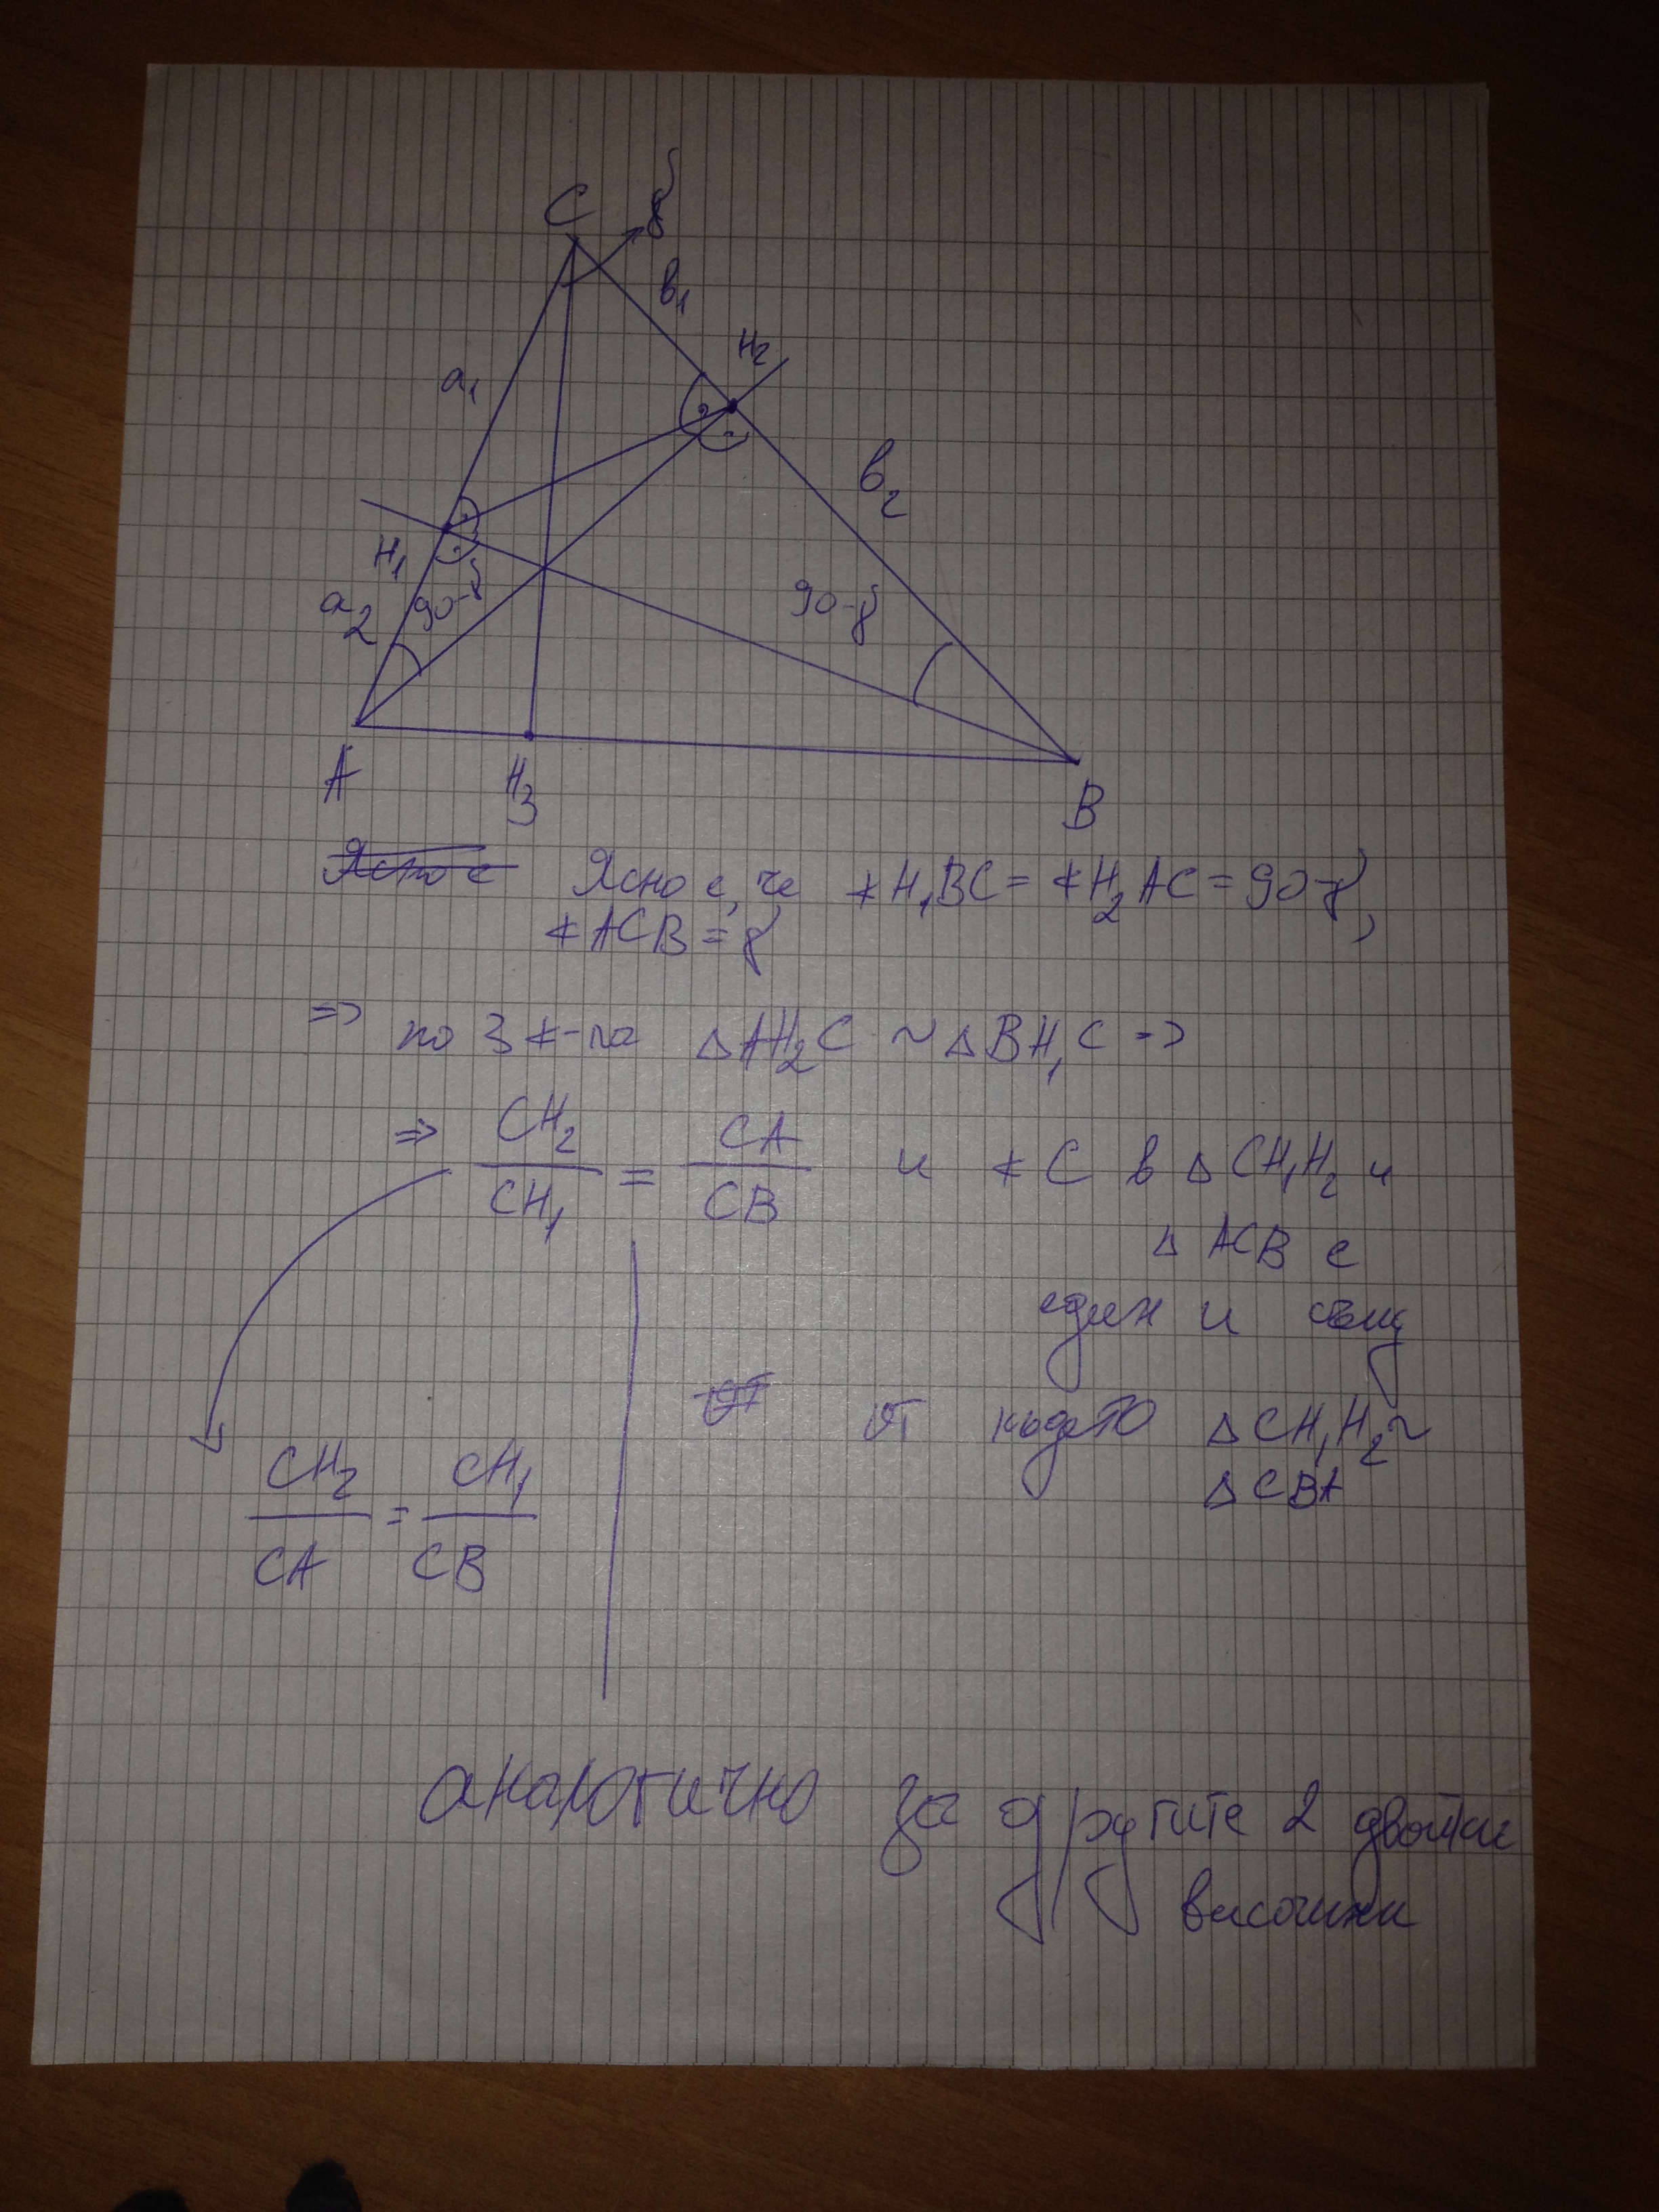 C
γ
a₁
b₁
H₂
b₂
H₁
a₂
90-γ
90-γ
A
H₃
B
Ясно е
Ясно е, че ∢H₁BC = ∢H₂AC = 90-γ,
∢ACB = γ
=> по 3 ∢-ла △AH₂C ~ △BH₁C =>
=> CH₂/CH₁ = CA/CB и ∢C в △CH₁H₂ и
△ACB е
един и същ
от
от където △CH₁H₂ ~
△CBA
CH₂/CA = CH₁/CB
аналогично за другите 2 двойки
височини